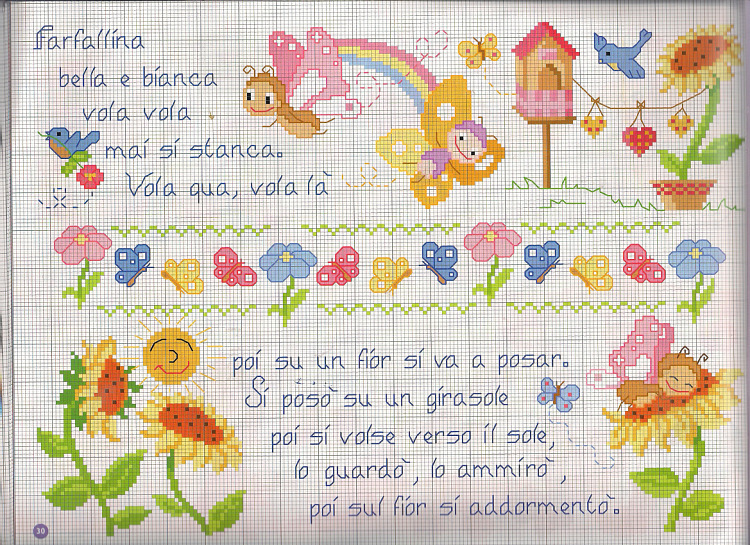 Farfallina
bella e bianca
vola vola
mai si stanca.
Vola qua, vola là
poi su un fior si va a posar.
Si posò su un girasole
poi si volse verso il sole,
lo guardò, lo ammirò,
poi sul fior si addormentò.
30